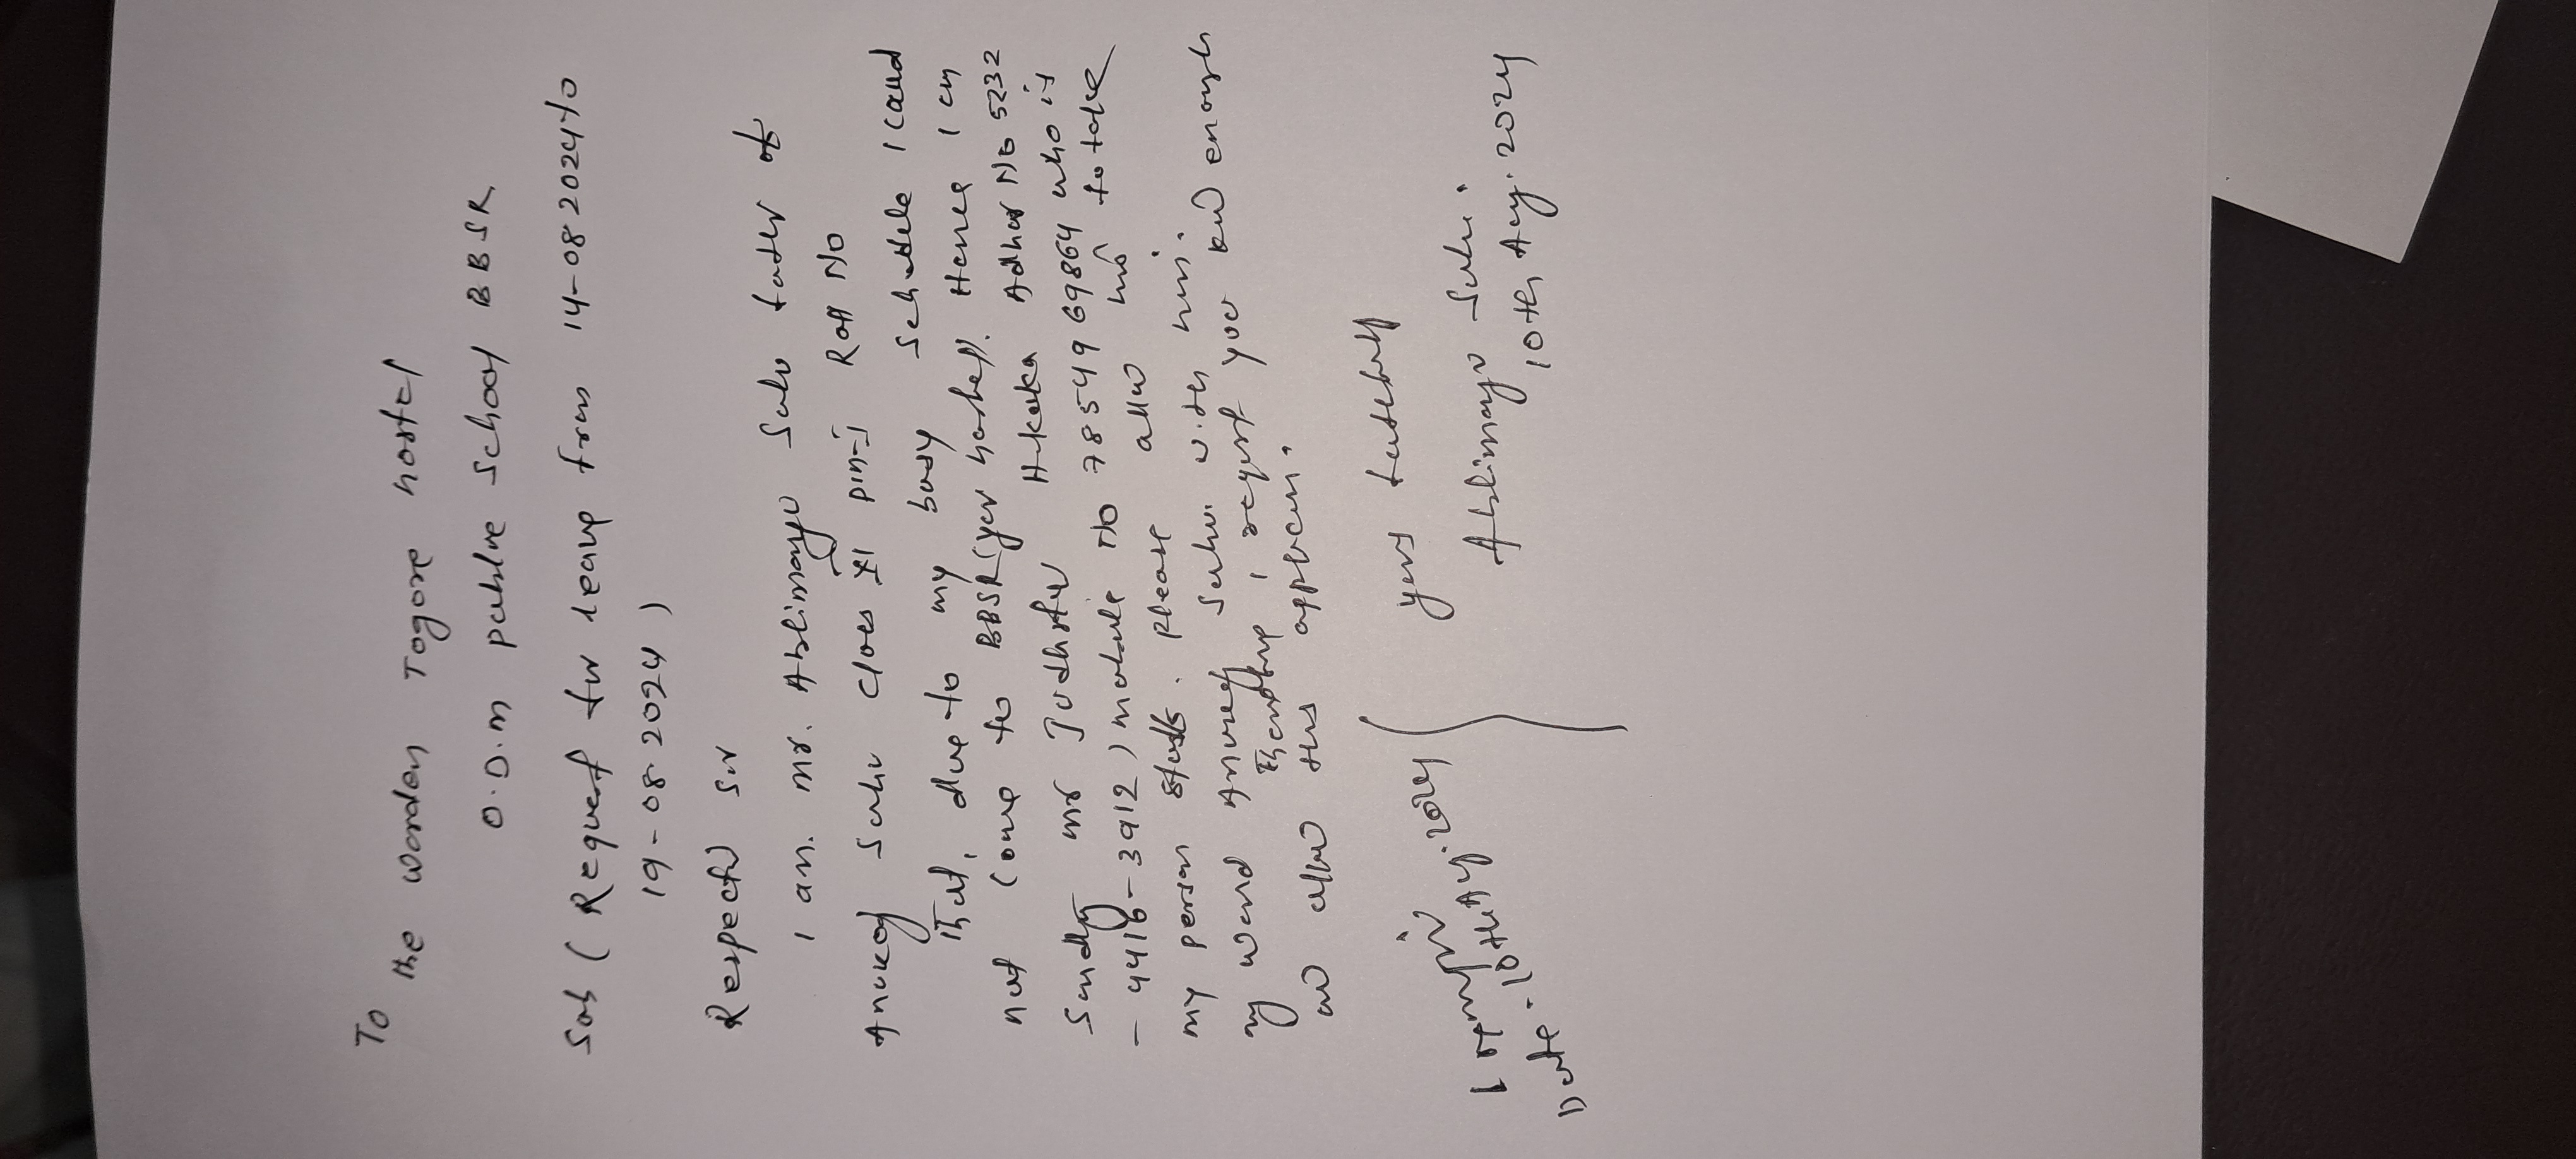 To
The Warden Togore hostel
O.D.M public School BBSR
Sub ( Request for leave from 14-08 2024 to
19-08 2024 )
Respectd Sir
I am. Mr. Abhimanyu Sahu father of
Sahu class XI Roll No
that, due to my busy Schedule I caud
not come to BBSR your hostel. Hence I am
Sanding Mr Hikaka Adhar No 5232
- 4416-3912) mobile No 7854969864 who is
my person staff. Please allow him to take
my ward Sahu with him.
I request you kind enough
and allow this
yours
Abhimanyu Sahu.
Date - 10th Aug. 2024
10th Aug. 2024